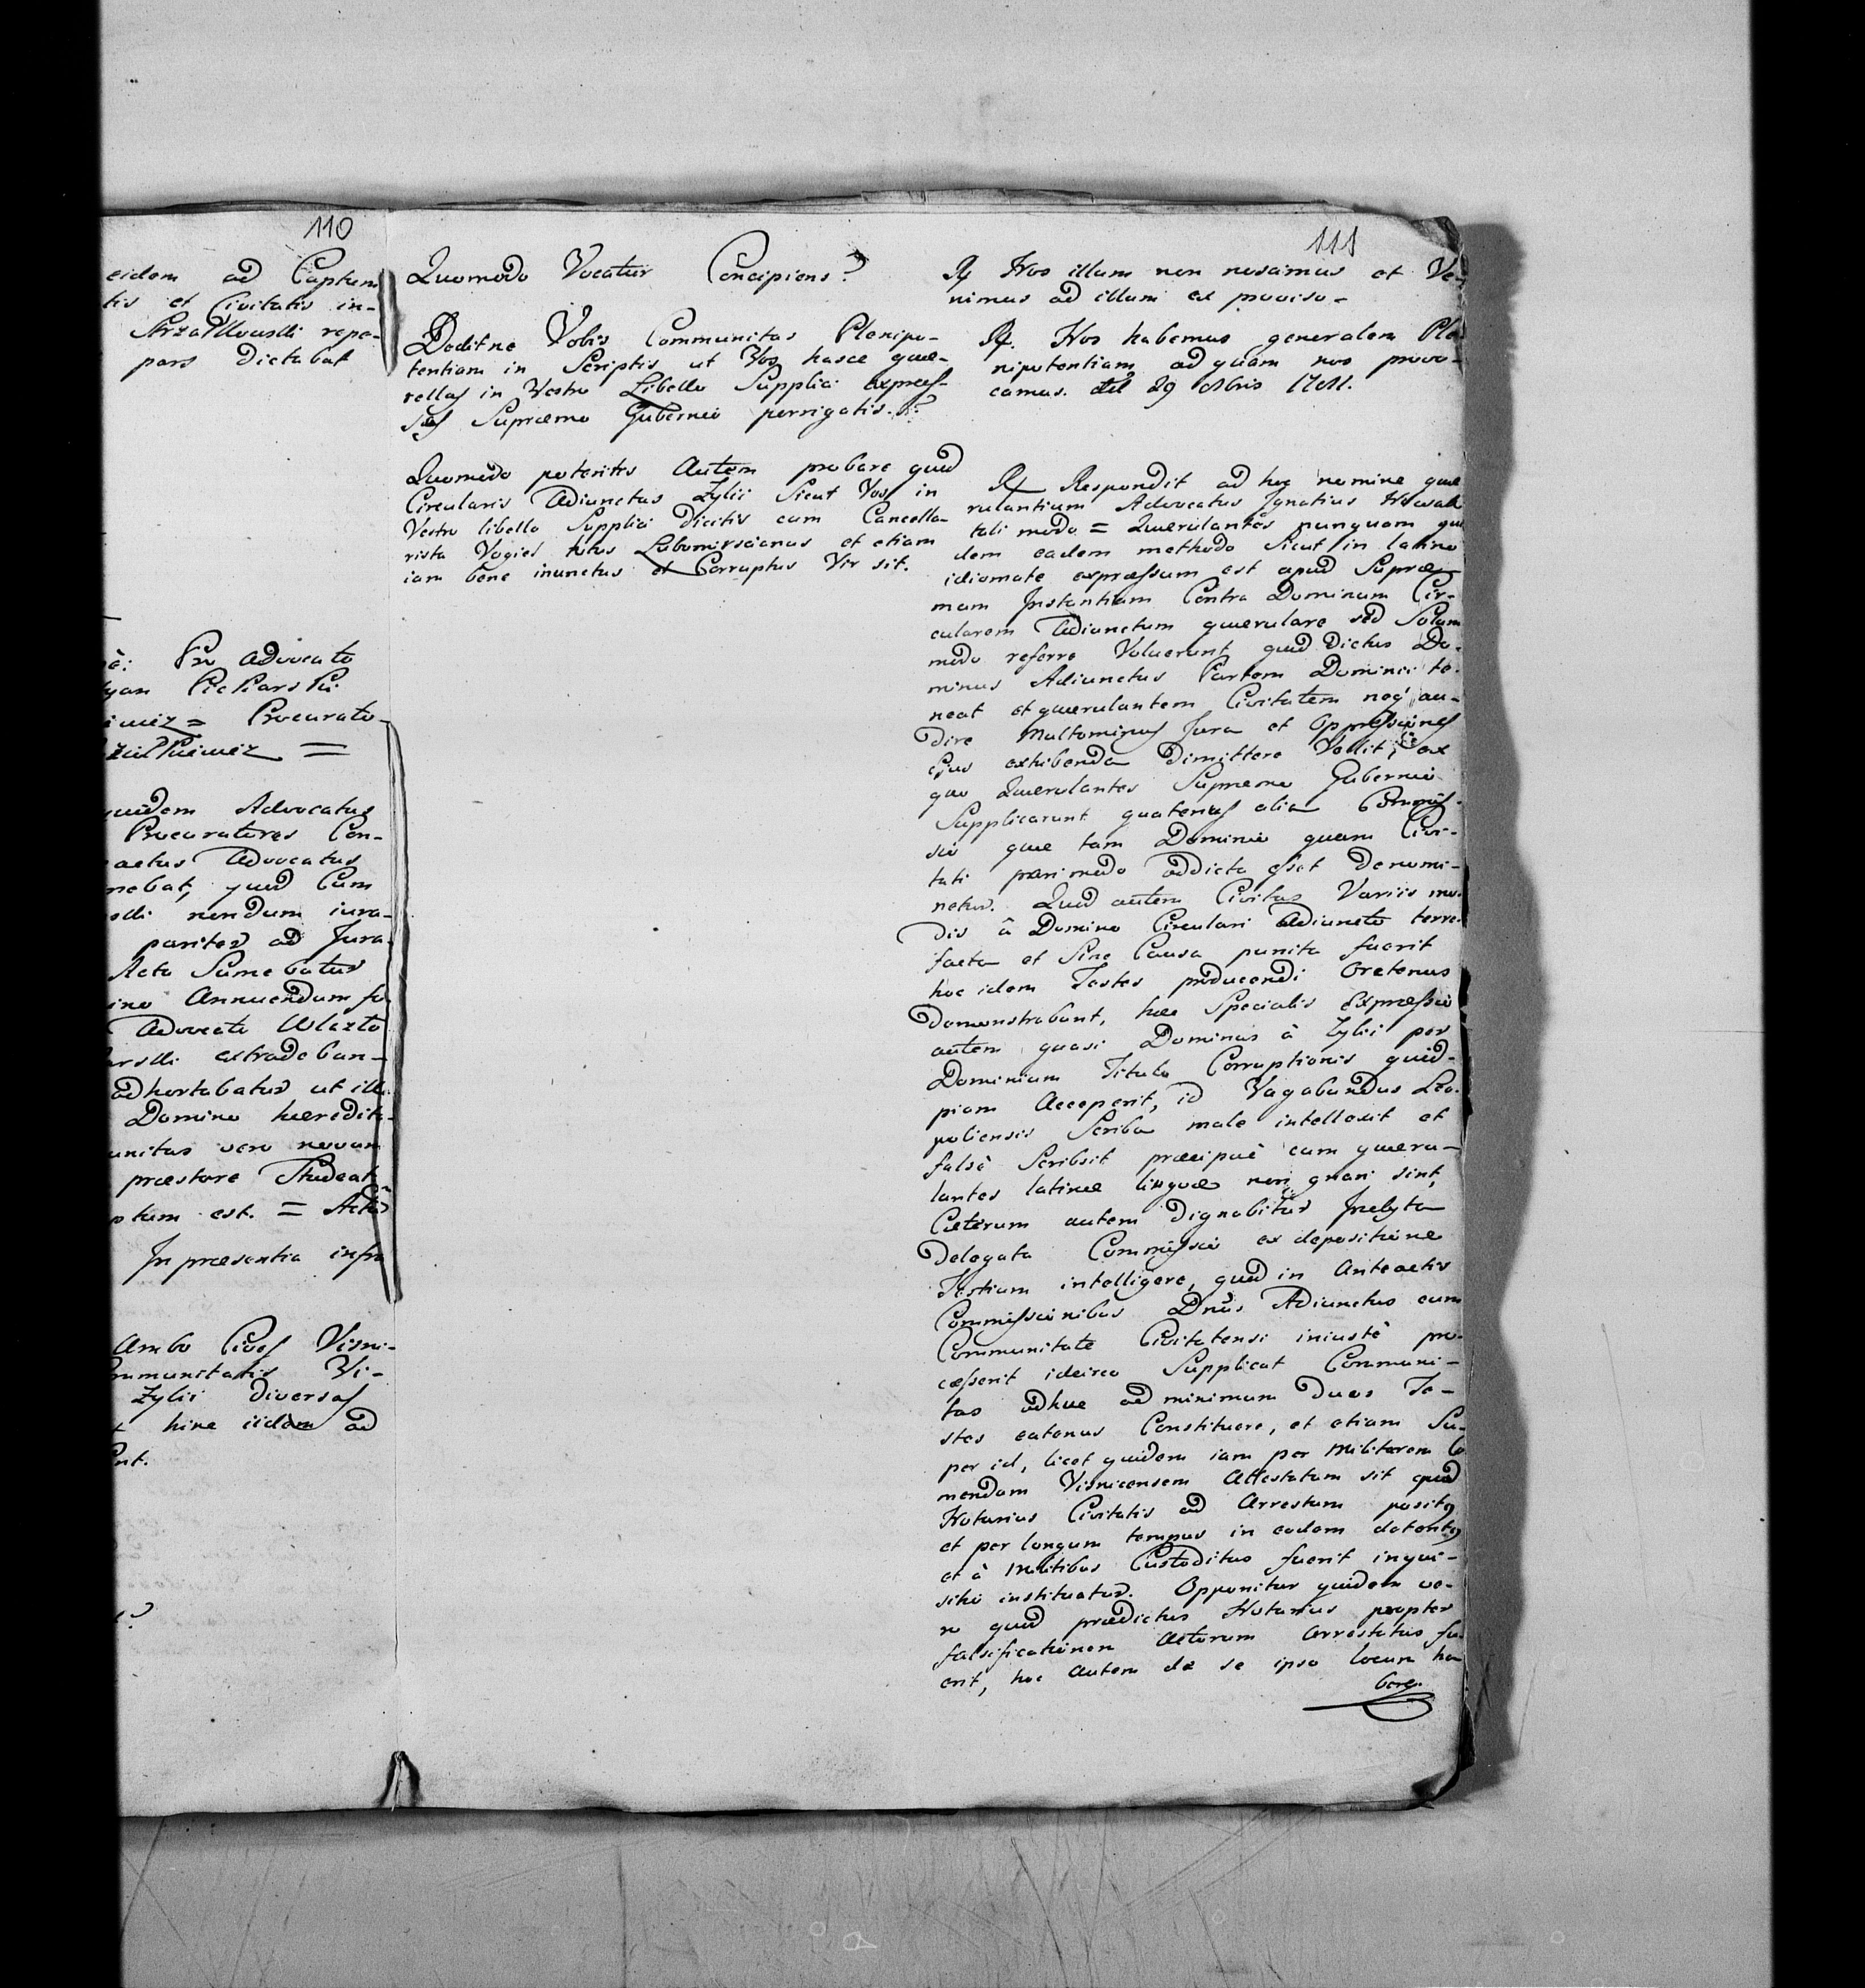 110
eidem ad Captum
tis et Civitatis in-
Strzałkowski repe-
pars Dictabat
Pro Advocato
Piekarski
Procurato-
=
quidem Advocatus
Procuratores Con-
Advocatus
nebat, quod Cum
nondum iura-
pariter ad Jura-
Acta Sumebatur
Annuendum fu
Advocato
extradeban-
adhortabatur ut illi
Domino hæredita-
unitas vero novam
præstare Studeat
ptum est. =
In præsentia infra
Ambo Cives Visni-
mmunitatis Vi-
Zylii diversas
hinc iidem ad
111
Quomodo Vocatur Concipiens?
Deditne Vobis Communitas Plenipo-
tentiam in Scriptis ut Vos hasce que-
rellas in Vestro Libello Supplici express-
sas Supremo Gubernio porrigatis?
Quomodo poteritis Autem probare quod
Circularis Adiunctus Zylii Sicut Vos in
Vestro libello Supplici Dicitis cum Cancella-
rista Vogiel totus Lubomirscianus et etiam
iam bene inunctus et Corruptus Vir sit.
Rx Nos illum non noscimus et Ve-
nimus ad illum ex proviso-
Rx. Nos habemus generalem Ple-
nipotentiam ad quam nos provo-
camus. 29
Rx Respondit ad hoc nomine que
rulantium Advocatus Ignatius
tali modo = Querulantes nunquam qui
dem eadem methodo Sicut in latino
idiomate expressum est apud Supre-
mam Instantiam Contra Dominum Cir-
cularem Adiunctum querulare sed Solum
modo referre Voluerunt quod Dictus Do-
minus Adiunctus Partem Dominii te-
neat et querulantem Civitatem neq au-
dire Multominus Jura et Oppressiones
Ejus exhibenda Dimittere Velit, ex
quo Querulantes Supremo Gubernio
Supplicarunt quatenus alia Commis-
sio que tam Dominio quam Civi-
tati pari modo addicta esset denomi-
netur. Quod autem Civitas Variis mo-
dis â Domino Circulari Adiuncto terre-
facta et Sine Causa punita fuerit
hoc idem Testes producendi Oretenus
Demonstrabunt, hæc Specialis Expressio
autem quasi Dominus à Zylii per
Dominium Titulo Corruptionis quid-
piam Acceperit, id Vagabundus Leo-
poliensis Scriba male intellexit et
falsè Scribsit præcipuè cum queru-
lantes latinæ linguæ non gnari sint,
Cæterum autem Dignabitur Inclyta
Delegata Commissio ex depositione
Testium intelligere, quod in Anteactis
Commissionibus Dnus Adiunctus cum
Communitate Civitatensi iniustè pro-
cesserit idcirco Supplicat Communi-
tas adhuc ad minimum duos Te-
stes eatenus Constituere, et etiam Su-
per id, licet quidem iam per Militarem Co
mendam Visnicensem Attestatum sit quod
Notarius Civitatis ad Arrestum positg
et per longum tempus in eodem detentg
et à Militibus Custoditus fuerit inqui-
sitio instituatur. Opponitur quidem ve-
ro quod prædictus Notarius propter
falsificationem Actorum Arrestatus fu-
erit, hoc autem de se ipso locum ha
bere.